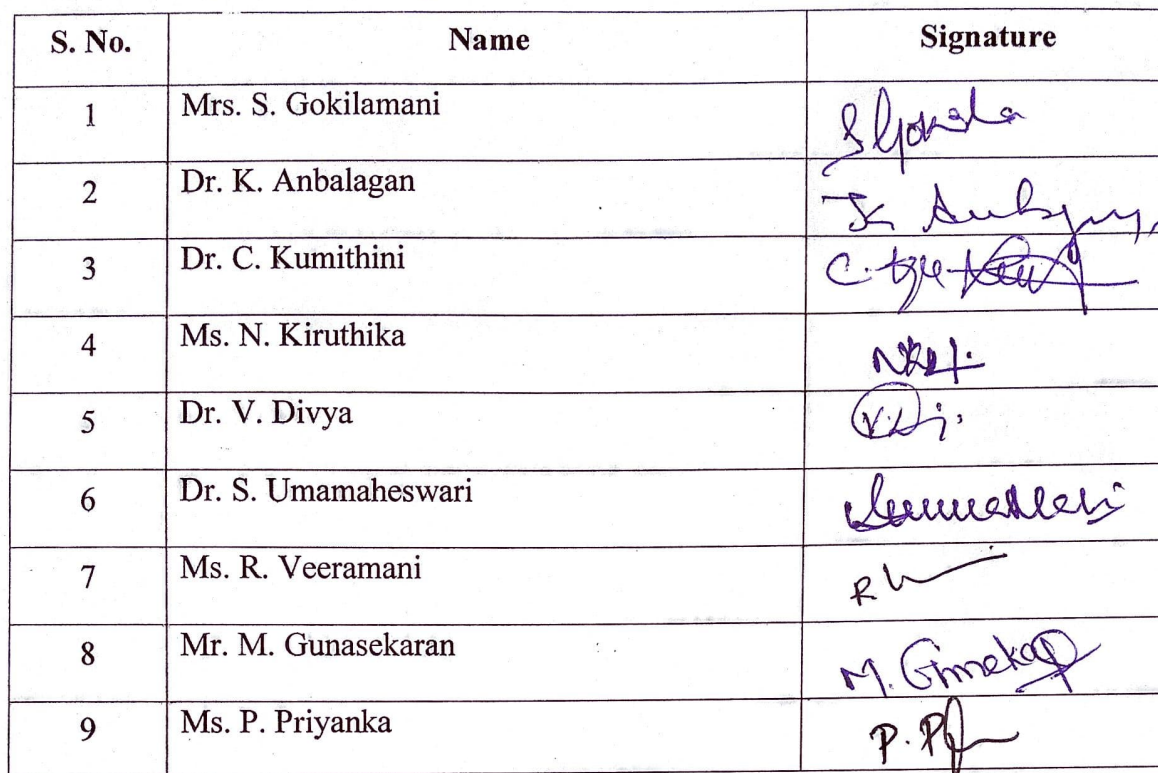 S. No. Name Signature
1 Mrs. S. Gokilamani S Gokila
2 Dr. K. Anbalagan K
3 Dr. C. Kumithini C.
4 Ms. N. Kiruthika
5 Dr. V. Divya
6 Dr. S. Umamaheswari
7 Ms. R. Veeramani R
8 Mr. M. Gunasekaran M.
9 Ms. P. Priyanka P.